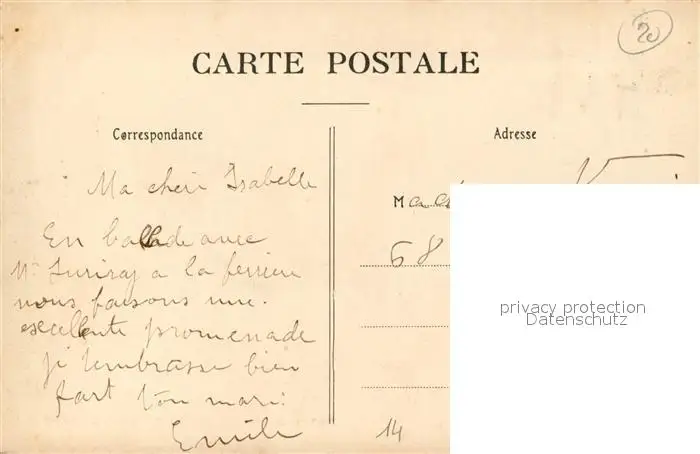 20
CARTE POSTALE
Correspondance
Adresse
Ma cheri Isabelle
Mad
68
En ballade avec
Mr a la ferriere
nous faisons une
excellente promenade
je tembrasse bien
fort ton mari
Emile
14
privacy protection
Datenschutz